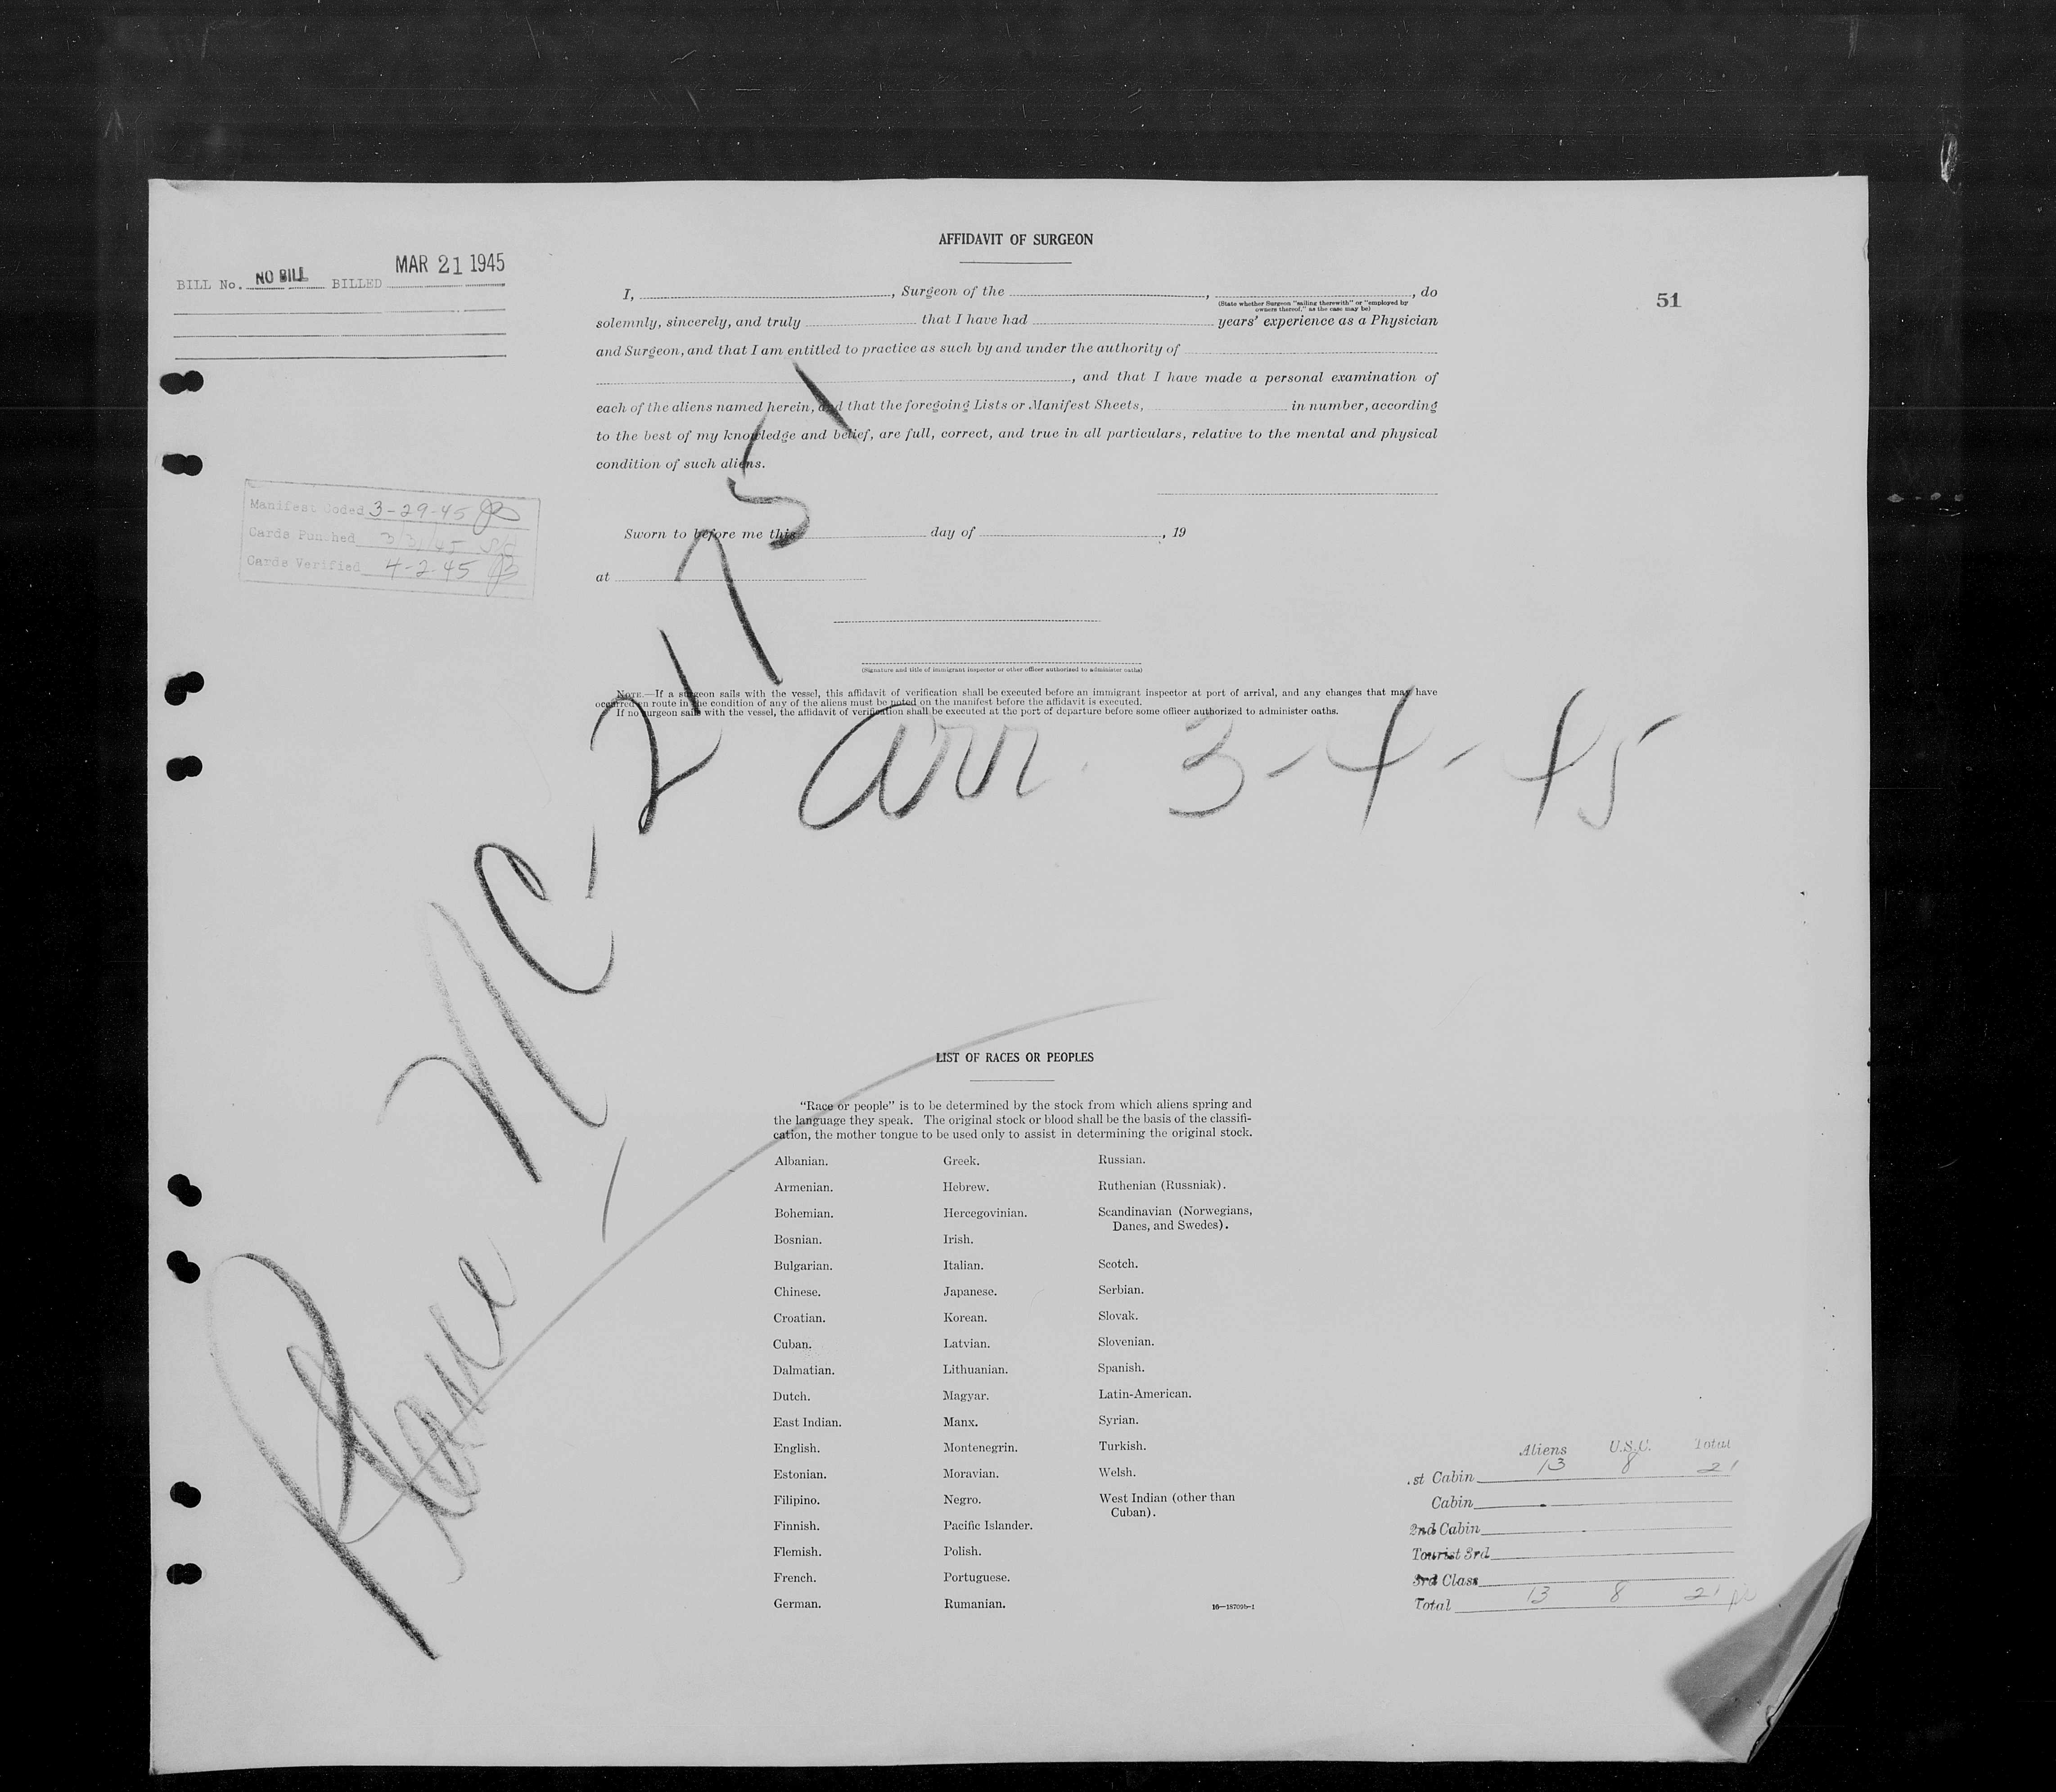 AFFIDAVIT OF SURGEON
BILL No. NO BILL BILLED MAR 21 1945
51
I, , Surgeon of the , , do
(State whether Surgeon "sailing therewith" or "employed by
owners thereof," as the case may be)
solemnly, sincerely, and truly that I have had years' experience as a Physician
and Surgeon, and that I am entitled to practice as such by and under the authority of
, and that I have made a personal examination of
each of the aliens named herein, and that the foregoing Lists or Manifest Sheets, in number, according
to the best of my knowledge and belief, are full, correct, and true in all particulars, relative to the mental and physical
condition of such aliens.
Manifest Coded 3-29-45
Cards Punched
Cards Verified 4-2-45
Sworn to before me this day of , 19
at
(Signature and title of immigrant inspector or other officer authorized to administer oaths)
NOTE.—If a surgeon sails with the vessel, this affidavit of verification shall be executed before an immigrant inspector at port of arrival, and any changes that may have
occurred en route in the condition of any of the aliens must be noted on the manifest before the affidavit is executed.
If no surgeon sails with the vessel, the affidavit of verification shall be executed at the port of departure before some officer authorized to administer oaths.
Plane - NC-
arr. 3-4-45
LIST OF RACES OR PEOPLES
"Race or people" is to be determined by the stock from which aliens spring and
the language they speak. The original stock or blood shall be the basis of the classifi-
cation, the mother tongue to be used only to assist in determining the original stock.
Albanian.
Armenian.
Bohemian.
Bosnian.
Bulgarian.
Chinese.
Croatian.
Cuban.
Dalmatian.
Dutch.
East Indian.
English.
Estonian.
Filipino.
Finnish.
Flemish.
French.
German.
Greek.
Hebrew.
Hercegovinian.
Irish.
Italian.
Japanese.
Korean.
Latvian.
Lithuanian.
Magyar.
Manx.
Montenegrin.
Moravian.
Negro.
Pacific Islander.
Polish.
Portuguese.
Rumanian.
Russian.
Ruthenian (Russniak).
Scandinavian (Norwegians,
Danes, and Swedes).
Scotch.
Serbian.
Slovak.
Slovenian.
Spanish.
Latin-American.
Syrian.
Turkish.
Welsh.
West Indian (other than
Cuban).
16—18709b-1
Aliens U.S.C. Total
.st Cabin 13 8 21
Cabin
2nd Cabin
Tourist 3rd
3rd Class
Total 13 8 21